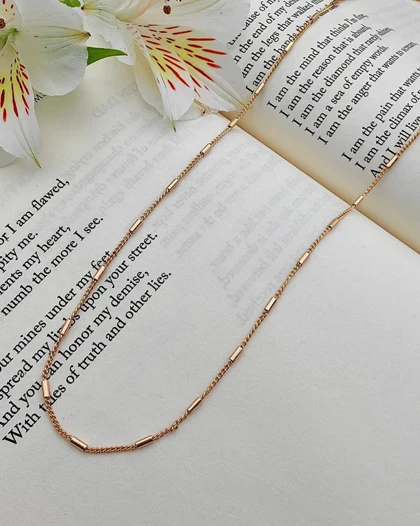 r I am flawed,
pity me.
ents my heart,
numb the more I see.
our mines under my feet,
spread my limbs upon your street.
And you can honor my demise,
With tales of truth and other lies.
cause of my
n the end of my do
m the legs that walked
I am the mind that think I'm
I am the reason that is
I am the diamond that rarely shines
I am a sea of empty words.
I am the anger that wants
I am the pain that
I am the climax of
And I will live